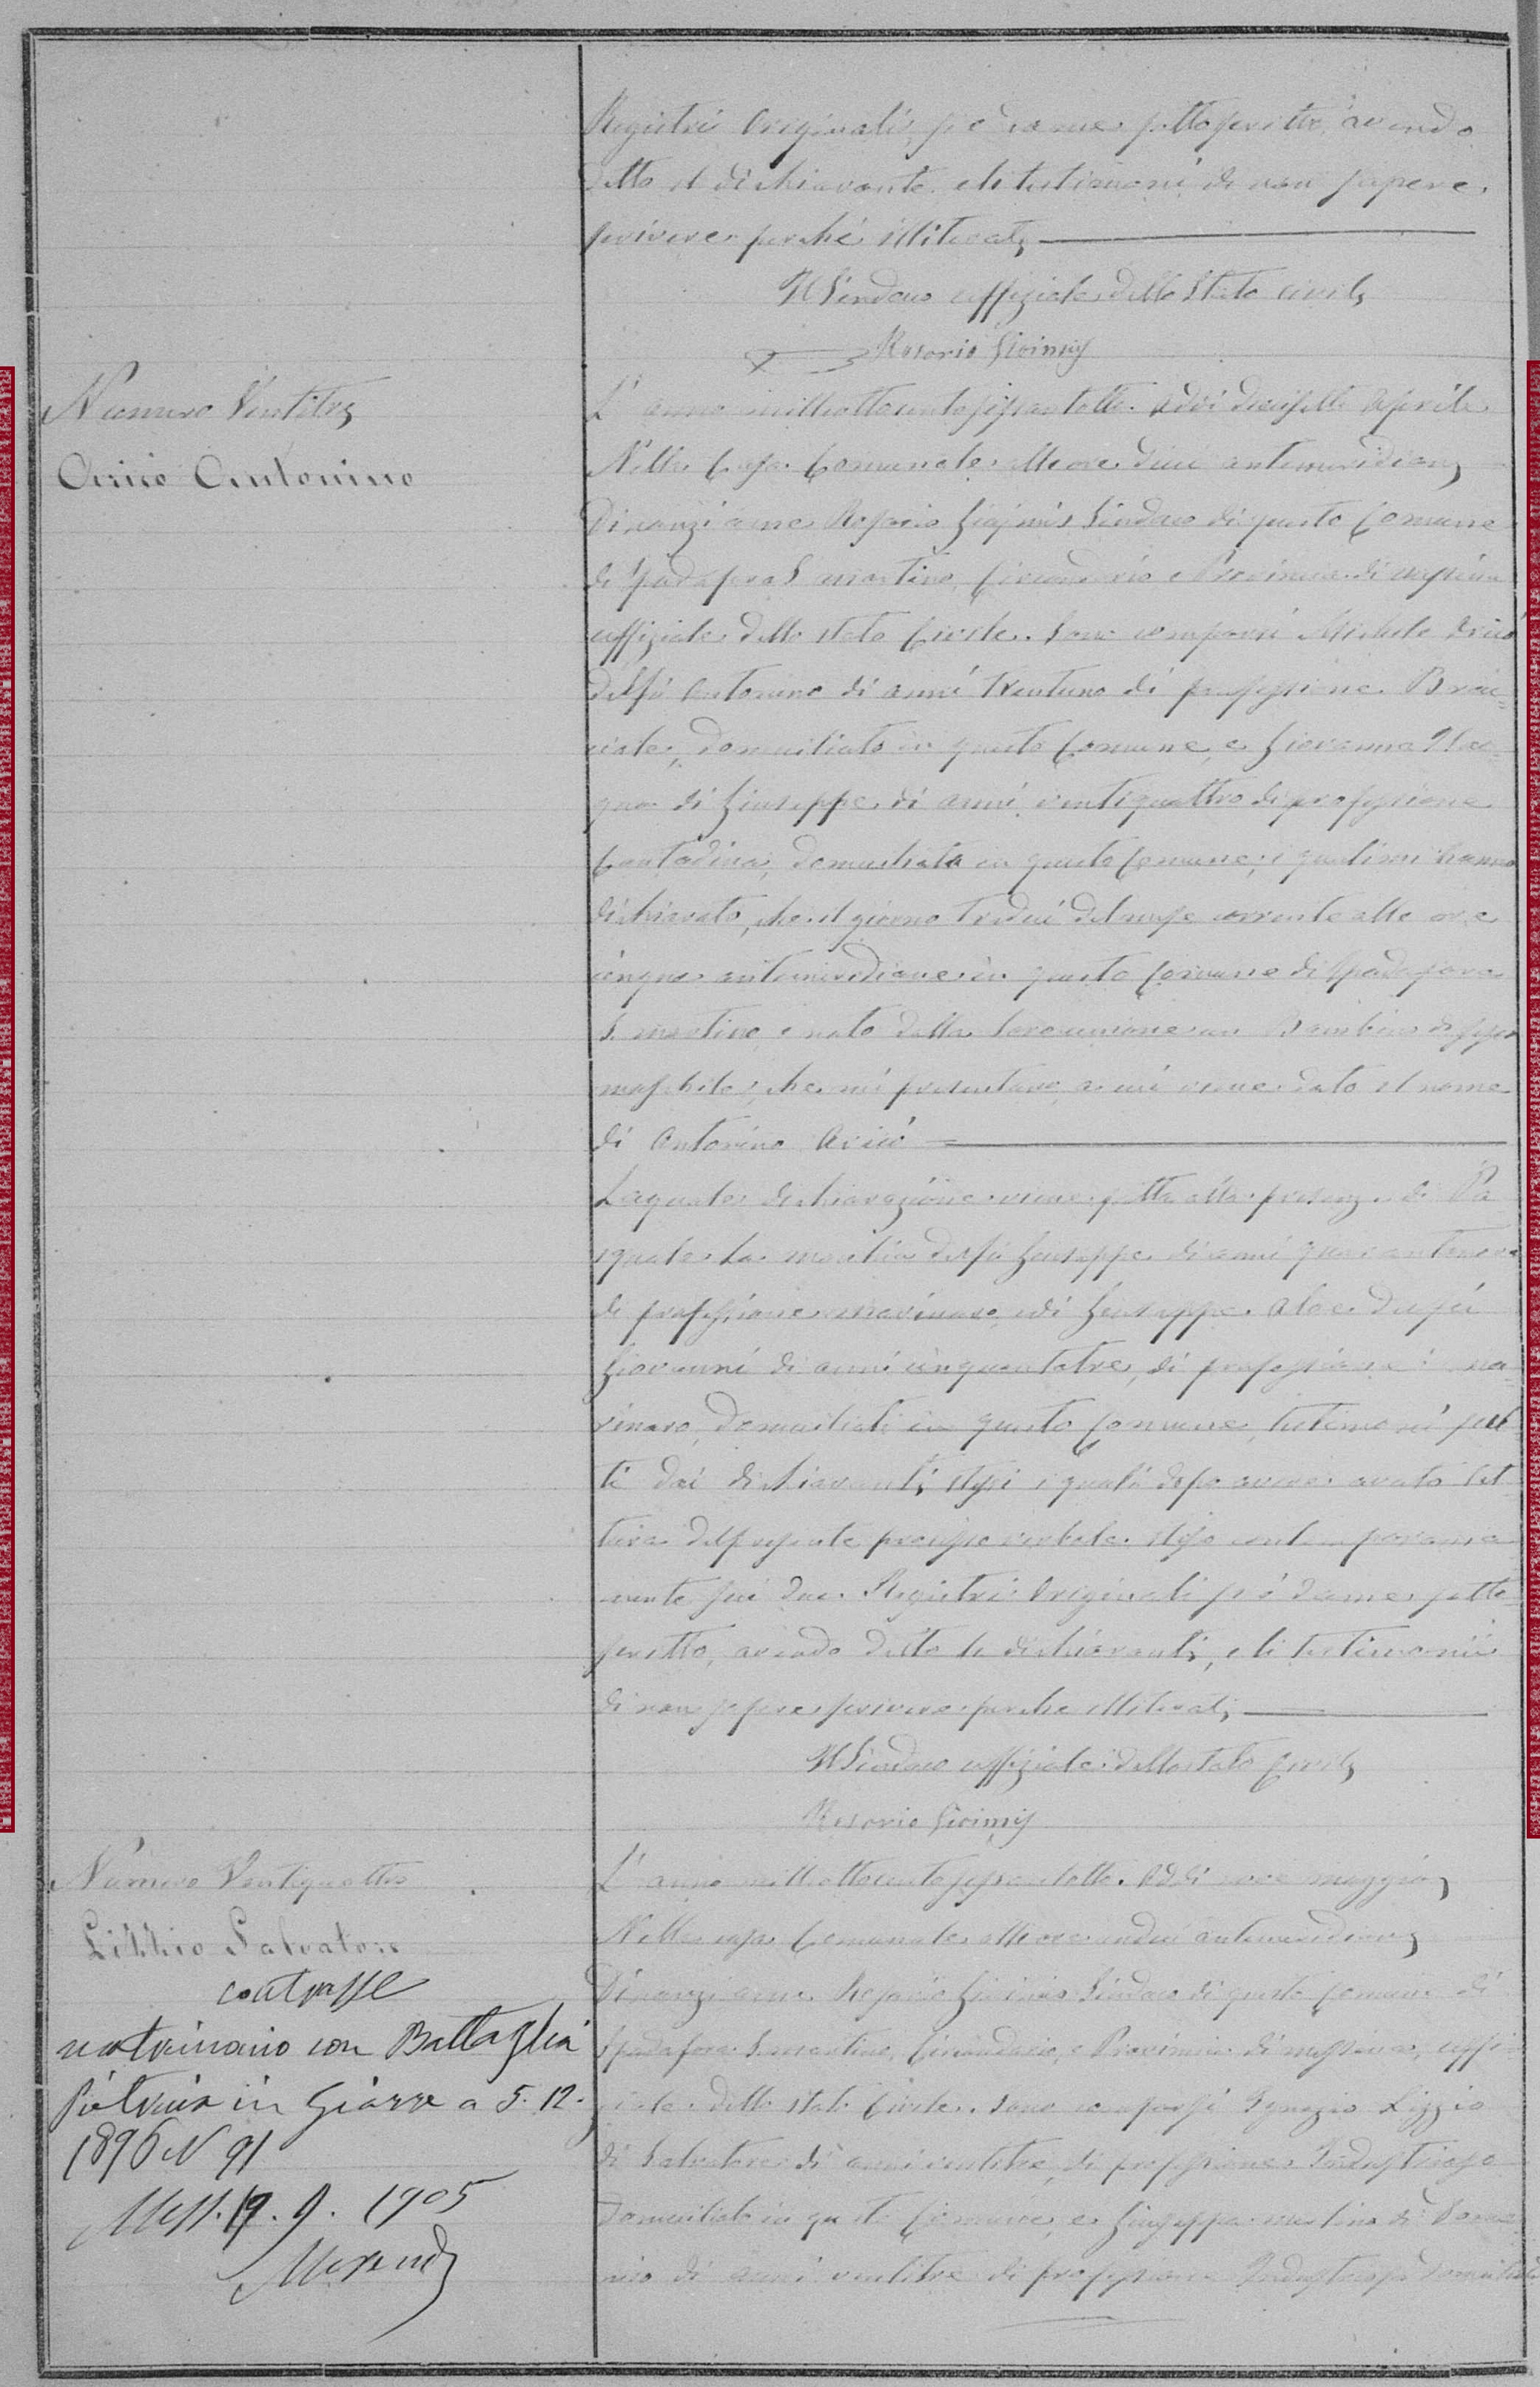 Registri Originali, si è da me sottoscritto, avendo
detto il dichiarante, e li testimoni di non sapere
scrivere perché illiterati
Il Sindaco uffiziale dello Stato Civile
Rosario
Numero Ventitre
Aricò Antonino
L'anno milleottocentosessantotto. Addi diecisette Aprile
Nella Casa Comunale alle ore dieci antimeridiane
Dinanzi a me Rosario Sindaco di questo Comune
di Spadafora S. Martino, Circondario e Provincia di Messina
uffiziale dello stato Civile. Sono comparsi Michele Aricò
del fu Antonino di anni trentuno di professione Brac-
ciale, domiciliato in questo Comune, e Giovanna
di Giuseppe di anni ventiquattro di professione
Contadina, domiciliata in questo Comune; i quali mi hanno
dichiarato, che il giorno tredici del mese corrente alle ore
cinque antimeridiane in questo Comune di Spadafora
S. Martino, è nato dalla loro unione un Bambino di sesso
maschile, che mi presentano, a cui viene dato il nome
di Antonino Aricò
La quale dichiarazione viene fatta alla presenza di Pa
squale La del fu Giuseppe di anni quarantanove
di professione marinaro, e di Giuseppe Aloe del fu
Giovanni di anni cinquantatre, di professione ma-
rinaro, domiciliati in questo Comune, testimoni scel
ti dai dichiaranti stessi i quali dopo avere avuto let
tura del presente processo verbale steso contemporanea
mente sui due Registri Originali si è da me sotto
scritto, avendo detto li dichiaranti, e li testimonii
di non sapere scrivere perche illiterati
Il Sindaco uffiziale dello stato Civile
Rosario
Numero Ventiquattro
Lizzio Salvatore
contrasse
matrimonio con Battaglia
Pietruia in Giarre a 5.12.
1896 N 91
Mess. 19. 9. 1905
L'anno milleottocentosessantotto. Addi nove maggio
Nella casa Comunale alle ore undici antimeridiane
Dinanzi a me Rosario Sindaco di questo Comune di
Spadafora S. Martino, Circondario, e Provincia di Messina, uffi
ziale dello stato Civile. Sono comparsi Ignazio Lizzio
di Salvatore di anni ventitre, di professione Industrioso
domiciliato in questo Comune, e Giuseppa di Dome
nico di anni ventitre di professione Industriosa domiciliata